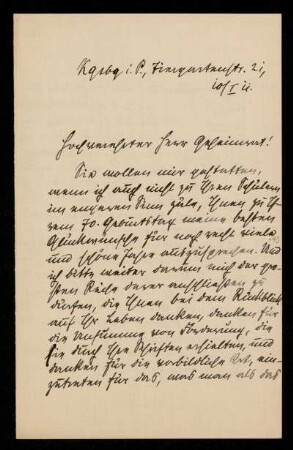 Kgsbg i. P., Tiergartenstr. 21,
10/I 11.
Hochverehrter Herr Geheimrat!
Sie wollen mir gestatten,
wenn ich auch nicht zu Ihren Schülern
im engeren Sinn zäle, Ihnen zu Ih-
rem 70. Geburtstag meine besten
Glückwünsche für noch recht viele
und schöne Jahre auszusprechen. Und
ich bitte weiter darum mich der gro-
ßen Reihe derer anschließen zu
dürfen, die Ihnen bei dem Rückblick
auf Ihr Leben danken, danken für
die Unsumme von Förderung, die
sie durch Ihre Schriften erhielten, und
danken für die vorbildliche Art, ein-
zutreten für das, was man als das